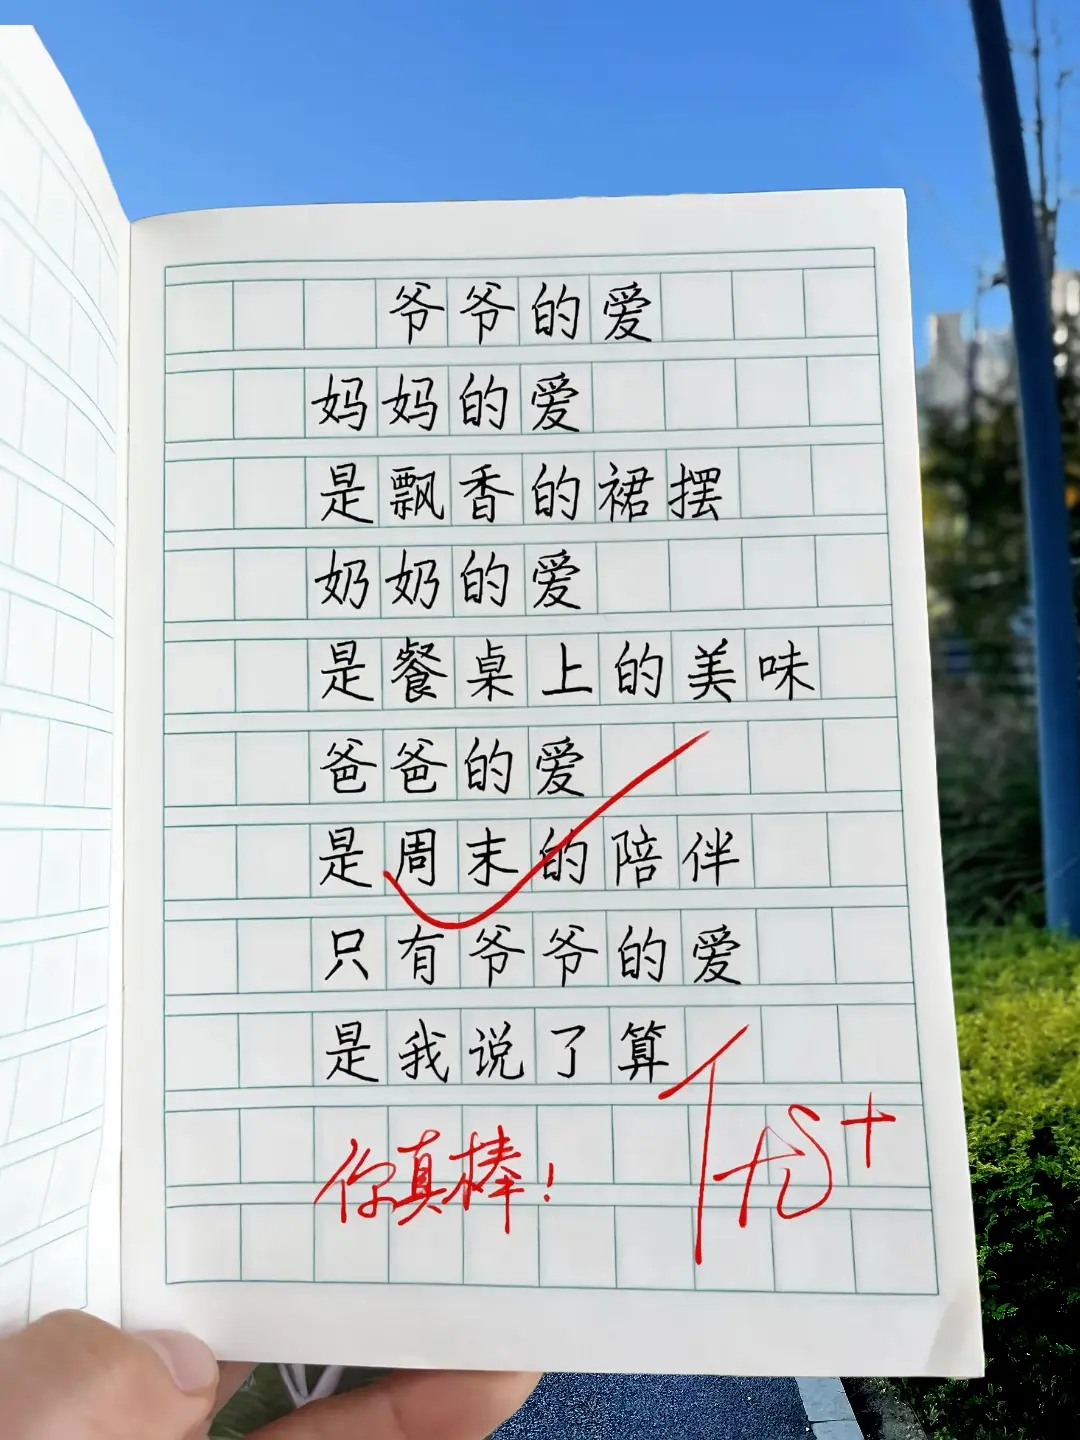 爷爷的爱
妈妈的爱
是飘香的裙摆
奶奶的爱
是餐桌上的美味
爸爸的爱
是周末的陪伴
只有爷爷的爱
是我说了算
你真棒!
优+